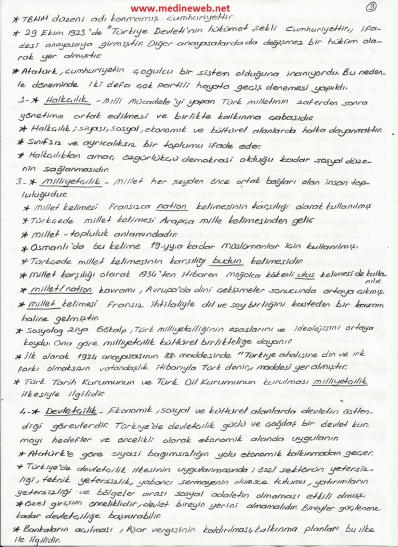 www.medineweb.com
3
* TBMM düzeni adı konmamış cumhuriyettir.
* 29 Ekim 1923'de "Türkiye Devleti'nin hükümet şekli Cumhuriyettir, ifa-
desi anayasaya girmiştir. Diğer anayasalarda da değişmez bir hüküm ola-
rak yer almıştır.
* Atatürk, cumhuriyetin çoğulcu bir sistem olduğuna inanıyordu. Bu neden-
le döneminde iki defa çok partili hayata geçiş denemesi yapıldı.
* Halkçılık - Milli Mücadele'yi yapan Türk milletinin zaferden sonra
yönetime ortak edilmesi ve birlikte kalkınma çabasıdır.
* Halkçılık, siyasi, sosyal, ekonomik ve kültürel alanlarda halka dayanmaktır.
* Sınıfsız ve ayrıcalıksız bir toplumu ifade eder.
* Halkçılıktan amaç, özgürlükçü demokrasi olduğu kadar sosyal düze-
nin sağlanmasıdır.
3- * milliyetçilik - millet her şeyden önce ortak bağları olan insan top-
luluğudur.
* millet kelimesi Fransızca nation kelimesinin karşılığı olarak kullanılmış
* Türkçede millet kelimesi Arapça mille kelimesinden gelir
* millet - topluluk anlamındadır.
* Osmanlı'da bu kelime 19.yy.a kadar müslümanlar için kullanılmış.
* Türkçede millet kelimesinin karşılığı budun kelimesidir.
* millet karşılığı olarak 1930'ten itibaren moğolca kökenli ulus kelimesi de kulla
nılır
* millet/nation kavramı, Avrupa'da dini çekişmeler sonucunda ortaya çıkmış.
* millet kelimesi Fransız ihtilaliyle dil ve soy birliğini kasteden bir kavram
haline gelmiştir.
* Sosyolog Ziya Gökalp, Türk milliyetçiliğinin esaslarını ve ideolojisini ortaya
koydu. Ona göre milliyetçilik kültürel birlikteliğe dayanır.
* İlk olarak 1924 anayasasının 88. maddesinde "Türkiye ahalisine din ve ırk
farkı olmaksızın vatandaşlık itibarıyla Türk denir, maddesi yer almıştır.
* Türk Tarih Kurumunun ve Türk Dil Kurumunun kurulması milliyetçilik
ilkesiyle ilgilidir.
4- * Devletçilik - Ekonomik, sosyal ve kültürel alanlarda devletin üstlen-
diği görevlerdir. Türkiye'de devletçilik güçlü ve çağdaş bir devlet kur-
mayı hedefler ve öncelikli olarak ekonomik alanda uygulanır.
* Atatürk'e göre siyasi bağımsızlığın yolu ekonomik kalkınmadan geçer.
* Türkiye'de devletçilik ilkesinin uygulanmasında; özel sektörün yetersiz-
liği, teknik yetersizlik, yabancı sermayenin olumsuz tutumu, yatırımların
yetersizliği ve bölgeler arası sosyal adaletin olmaması etkili olmuş.
* Özel girişim önceliklidir, devlet bireyin yerini almamalıdır. Bireyler güçlenene
kadar devletçiliğe başvurabilir.
* Bankaların açılması, Aşar vergisinin kaldırılması, kalkınma planları bu ilke
ile ilgilidir.